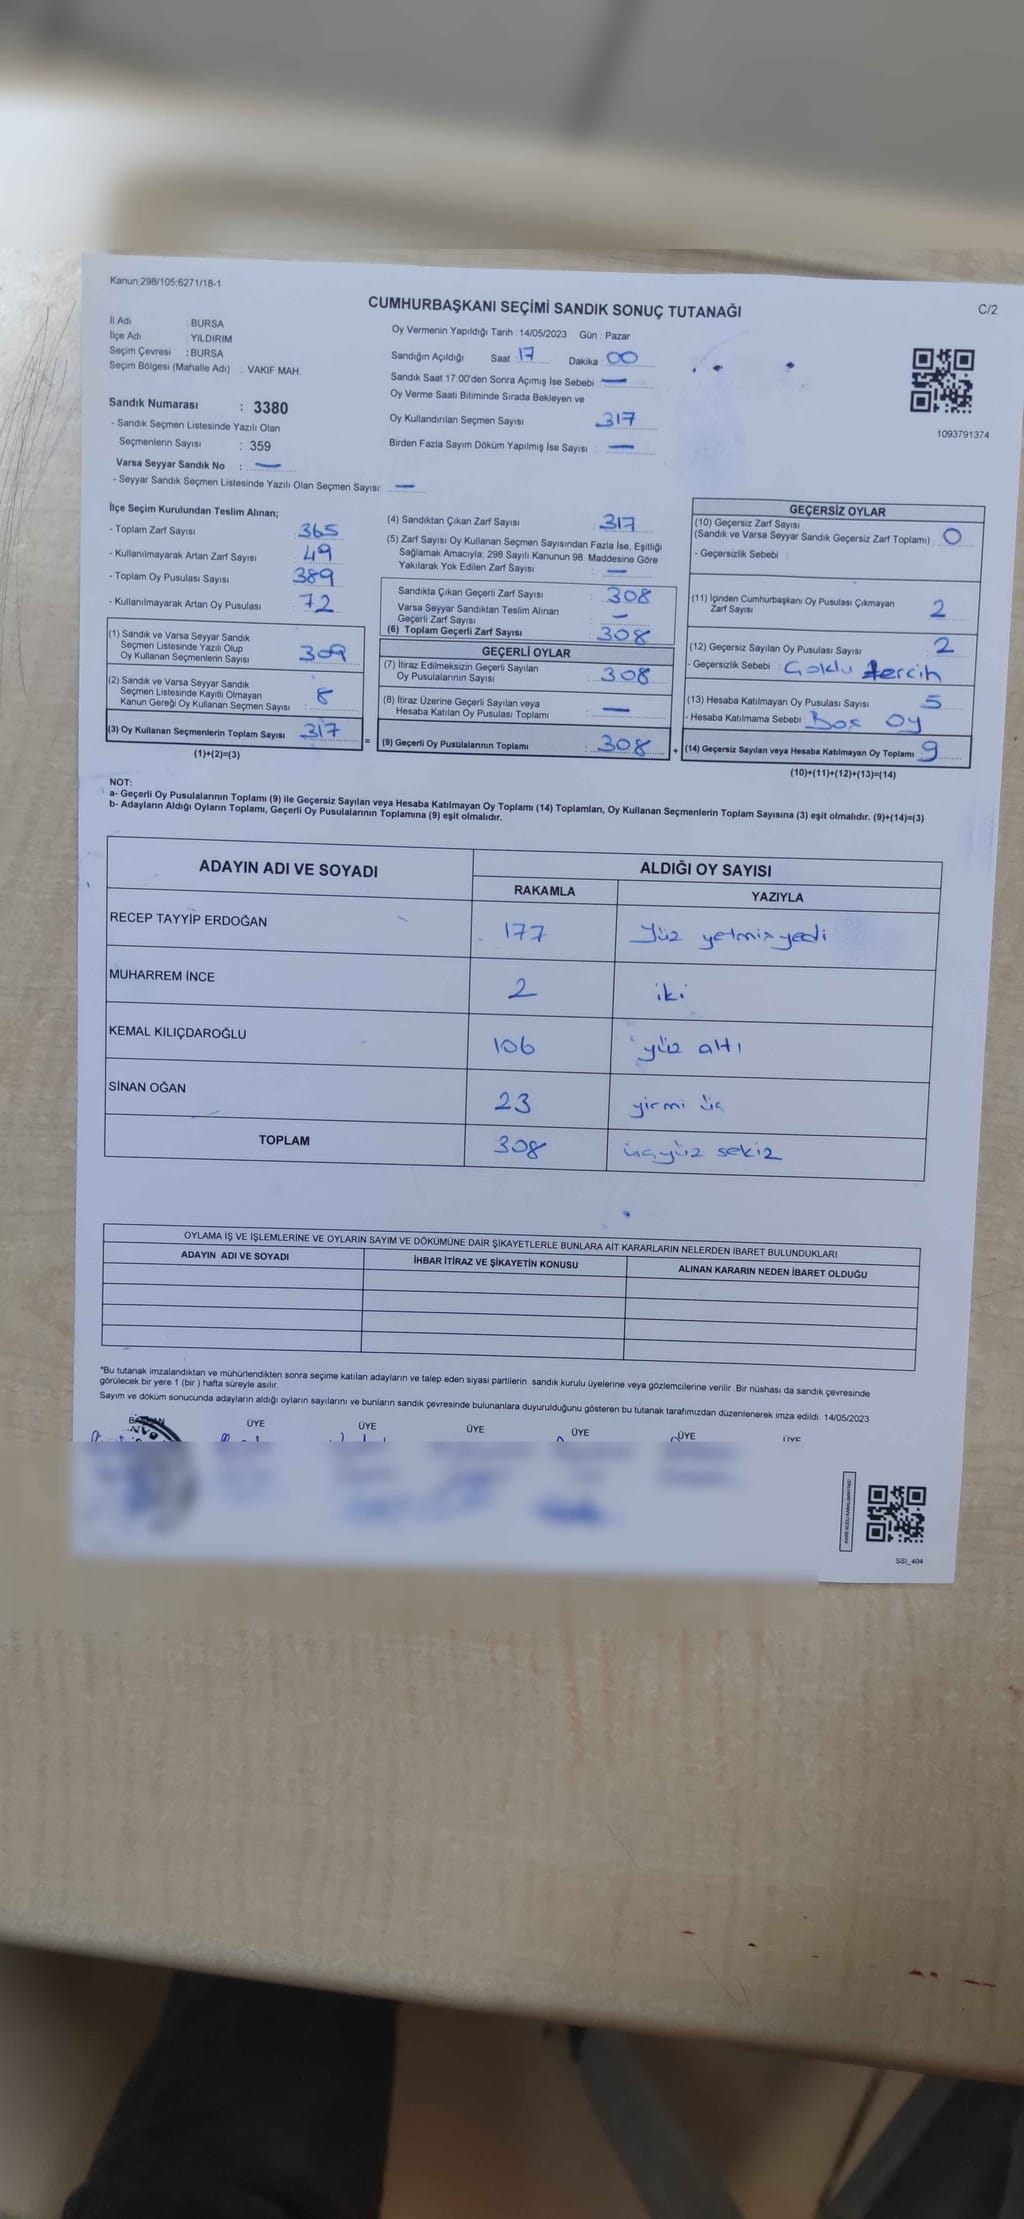 Kanun:298/105;6271/18-1
C/2
CUMHURBAŞKANI SEÇİMİ SANDIK SONUÇ TUTANAĞI
İl Adı : BURSA
İlçe Adı : YILDIRIM
Seçim Çevresi : BURSA
Seçim Bölgesi (Mahalle Adı) : VAKIF MAH.
Sandık Numarası : 3380
- Sandık Seçmen Listesinde Yazılı Olan
Seçmenlerin Sayısı : 359
Varsa Seyyar Sandık No : —
- Seyyar Sandık Seçmen Listesinde Yazılı Olan Seçmen Sayısı: —
Oy Vermenin Yapıldığı Tarih : 14/05/2023 Gün : Pazar
Sandığın Açıldığı Saat 17 Dakika : 00
Sandık Saat 17:00'den Sonra Açımış İse Sebebi : —
Oy Verme Saati Bitiminde Sırada Bekleyen ve
Oy Kullandırılan Seçmen Sayısı : 317
Birden Fazla Sayım Döküm Yapılmış İse Sayısı : —
1093791374
İlçe Seçim Kurulundan Teslim Alınan;
- Toplam Zarf Sayısı : 365
- Kullanılmayarak Artan Zarf Sayısı : 49
- Toplam Oy Pusulası Sayısı : 389
- Kullanılmayarak Artan Oy Pusulası : 72
(1) Sandık ve Varsa Seyyar Sandık
Seçmen Listesinde Yazılı Olup
Oy Kullanan Seçmenlerin Sayısı : 309
(2) Sandık ve Varsa Seyyar Sandık
Seçmen Listesinde Kayıtlı Olmayan
Kanun Gereği Oy Kullanan Seçmen Sayısı : 8
(3) Oy Kullanan Seçmenlerin Toplam Sayısı : 317
(1)+(2)=(3)
(4) Sandıktan Çıkan Zarf Sayısı : 317
(5) Zarf Sayısı Oy Kullanan Seçmen Sayısından Fazla İse, Eşitliği
Sağlamak Amacıyla; 298 Sayılı Kanunun 98. Maddesine Göre
Yakılarak Yok Edilen Zarf Sayısı : —
Sandıkta Çıkan Geçerli Zarf Sayısı : 308
Varsa Seyyar Sandıktan Teslim Alınan
Geçerli Zarf Sayısı : —
(6) Toplam Geçerli Zarf Sayısı : 308
GEÇERLİ OYLAR
(7) İtiraz Edilmeksizin Geçerli Sayılan
Oy Pusulalarının Sayısı : 308
(8) İtiraz Üzerine Geçerli Sayılan veya
Hesaba Katılan Oy Pusulası Toplamı : —
(9) Geçerli Oy Pusulalarının Toplamı : 308
GEÇERSİZ OYLAR
(10) Geçersiz Zarf Sayısı
(Sandık ve Varsa Seyyar Sandık Geçersiz Zarf Toplamı) : 0
- Geçersizlik Sebebi :
(11) İçinden Cumhurbaşkanı Oy Pusulası Çıkmayan
Zarf Sayısı : 2
(12) Geçersiz Sayılan Oy Pusulası Sayısı : 2
- Geçersizlik Sebebi : Çoklu tercih
(13) Hesaba Katılmayan Oy Pusulası Sayısı : 5
- Hesaba Katılmama Sebebi : Boş oy
(14) Geçersiz Sayılan veya Hesaba Katılmayan Oy Toplamı : 9
(10)+(11)+(12)+(13)=(14)
NOT:
a- Geçerli Oy Pusulalarının Toplamı (9) ile Geçersiz Sayılan veya Hesaba Katılmayan Oy Toplamı (14) Toplamları, Oy Kullanan Seçmenlerin Toplam Sayısına (3) eşit olmalıdır. (9)+(14)=(3)
b- Adayların Aldığı Oyların Toplamı, Geçerli Oy Pusulalarının Toplamına (9) eşit olmalıdır.
ADAYIN ADI VE SOYADI
ALDIĞI OY SAYISI
RAKAMLA YAZIYLA
RECEP TAYYİP ERDOĞAN 177 Yüz yetmiş yedi
MUHARREM İNCE 2 iki
KEMAL KILIÇDAROĞLU 106 yüz altı
SİNAN OĞAN 23 yirmi üç
TOPLAM 308 üçyüz sekiz
OYLAMA İŞ VE İŞLEMLERİNE VE OYLARIN SAYIM VE DÖKÜMÜNE DAİR ŞİKAYETLERLE BUNLARA AİT KARARLARIN NELERDEN İBARET BULUNDUKLARI
ADAYIN ADI VE SOYADI İHBAR İTİRAZ VE ŞİKAYETİN KONUSU ALINAN KARARIN NEDEN İBARET OLDUĞU
*Bu tutanak imzalandıktan ve mühürlendikten sonra seçime katılan adayların ve talep eden siyasi partilerin sandık kurulu üyelerine veya gözlemcilerine verilir .Bir nüshası da sandık çevresinde
görülecek bir yere 1 (bir ) hafta süreyle asılır.
Sayım ve döküm sonucunda adayların aldığı oyların sayılarını ve bunların sandık çevresinde bulunanlara duyurulduğunu gösteren bu tutanak tarafımızdan düzenlenerek imza edildi. 14/05/2023
ÜYE ÜYE ÜYE ÜYE ÜYE ÜYE
SSİ_404